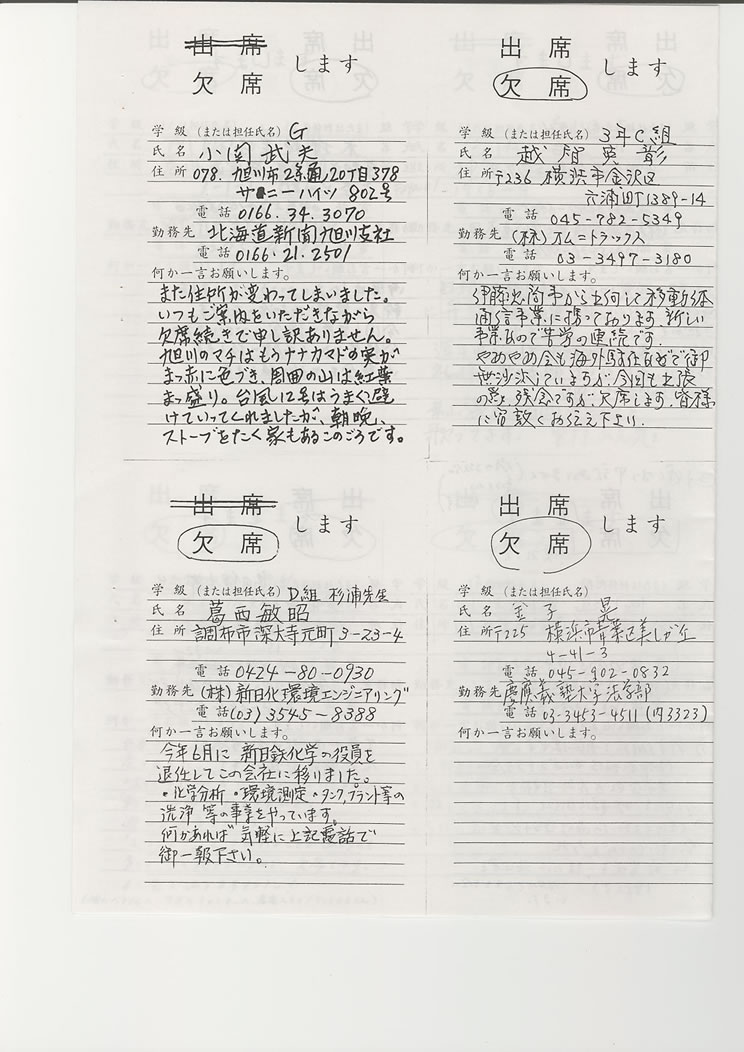 出席
欠席
します
学級（または担任氏名）G
氏名 小関武夫
住所 078. 旭川市2条通20丁目378
サニーハイツ 802号
電話 0166.34.3070
勤務先 北海道新聞旭川支社
電話 0166.21.2501
何か一言お願いします。
また住所が変わってしまいました。
いつもご案内をいただきながら
欠席続きで申し訳ありません。
旭川のマチはもうナナカマドの実が
まっ赤に色づき、周囲の山は紅葉
まっ盛り。台風12号はうまく避
けていってくれましたが、朝晩、
ストーブをたく家もあるこのごろです。
出席
欠席
します
学級（または担任氏名）3年C組
氏名 越智
住所 〒236 横浜市金沢区
六浦町1389-14
電話 045-782-5349
勤務先 (株)オムニトラックス
電話 03-3497-3180
何か一言お願いします。
伊藤忠商事から出向して移動体
通信事業に携っております. 新しい
事業なので苦労の連続です.
海外駐在などで御
無沙汰していますが、今回も出張
の為、残念ですが、欠席します. 皆様
に宜敷くお伝え下さい.
出席
欠席
します
学級（または担任氏名）D組 杉浦先生
氏名 葛西敏昭
住所 調布市深大寺元町3-23-4
電話 0424-80-0930
勤務先 (株)新日化環境エンジニアリング
電話 (03) 3545-8388
何か一言お願いします。
今年6月に 新日鉄化学の役員を
退任してこの会社に移りました。
・化学分析 ・環境測定 ・タンク,プラント等の
洗浄 等の事業をやっています。
何かあれば 気軽に上記電話で
御一報下さい。
出席
欠席
します
学級（または担任氏名）
氏名 金子 晃
住所 〒225 横浜市青葉区美しが丘
4-41-3
電話 045-902-0832
勤務先 慶應義塾大学法学部
電話 03-3453-4511 (内3323)
何か一言お願いします。